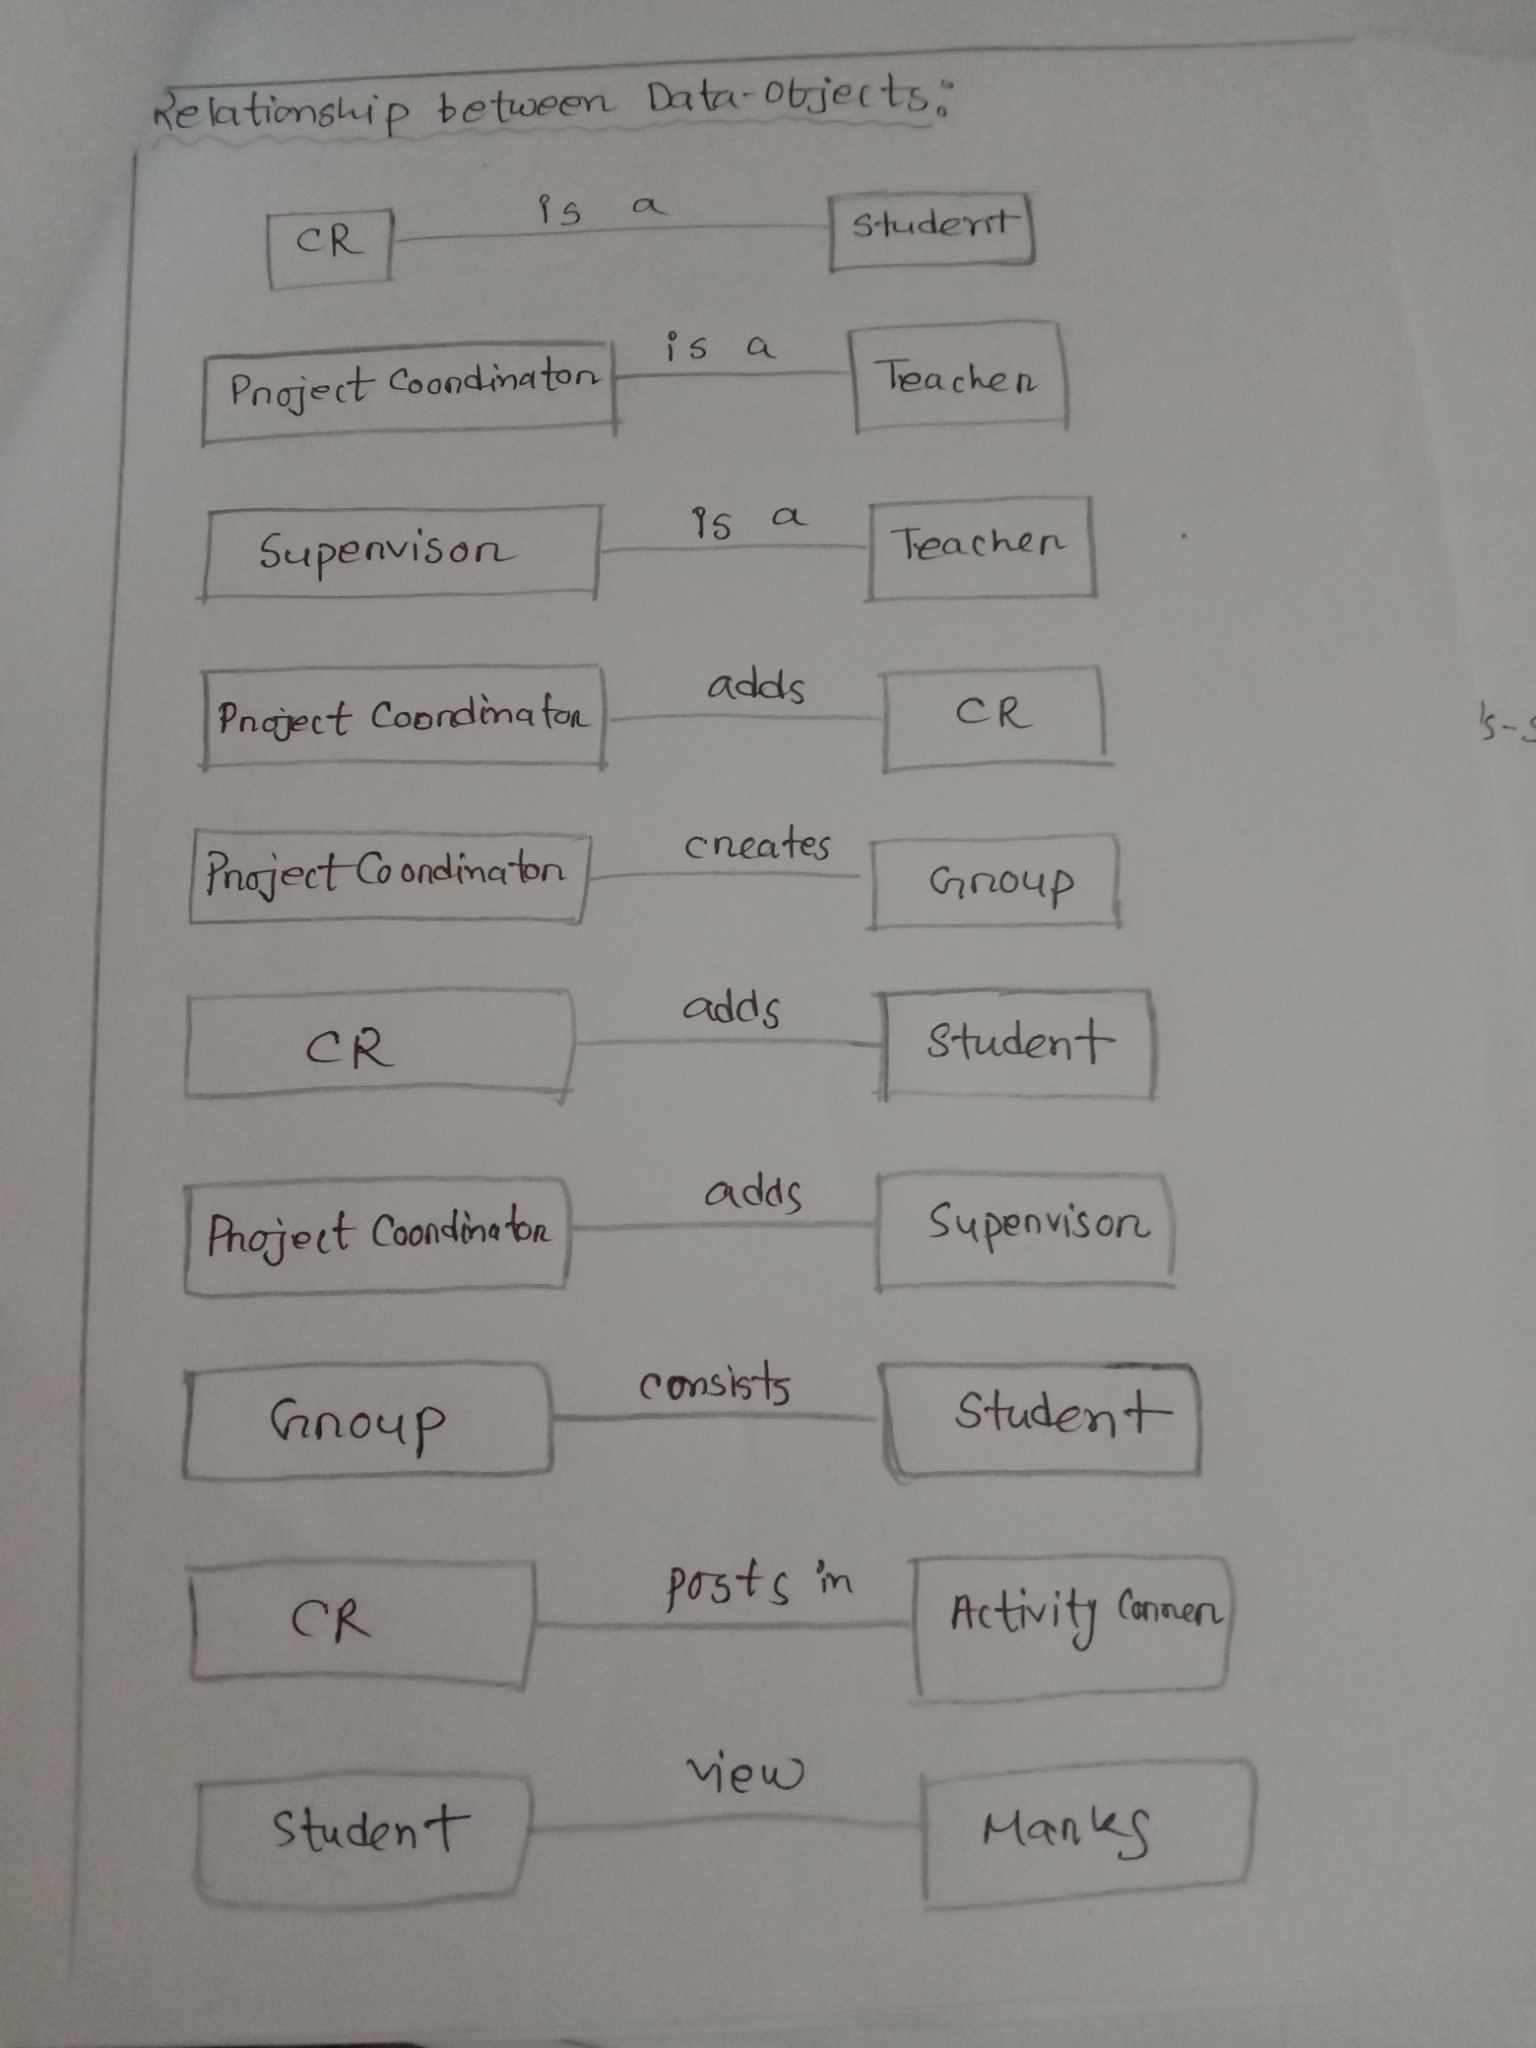 Relationship between Data-Objects:
CR is a Student
Project Coordinator is a Teacher
Supervisor is a Teacher
Project Coordinator adds CR
Project Coordinator creates Group
CR adds Student
Project Coordinator adds Supervisor
Group consists Student
CR posts in Activity Corner
Student view Marks